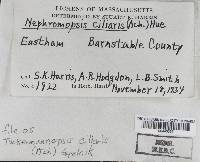 LICHENS OF MASSACHUSETTS
DETERMINED BY STUART K. HARRIS
Nephromopsis ciliaris (Ach.) Hue
Eastham Barnstable County
S.K. Harris, A.R. Hodgdon, L.B. Smith
No. 1922 November 18, 1934
file as
Tuckermannopsis ciliaris
(Ach.) Gyelnik